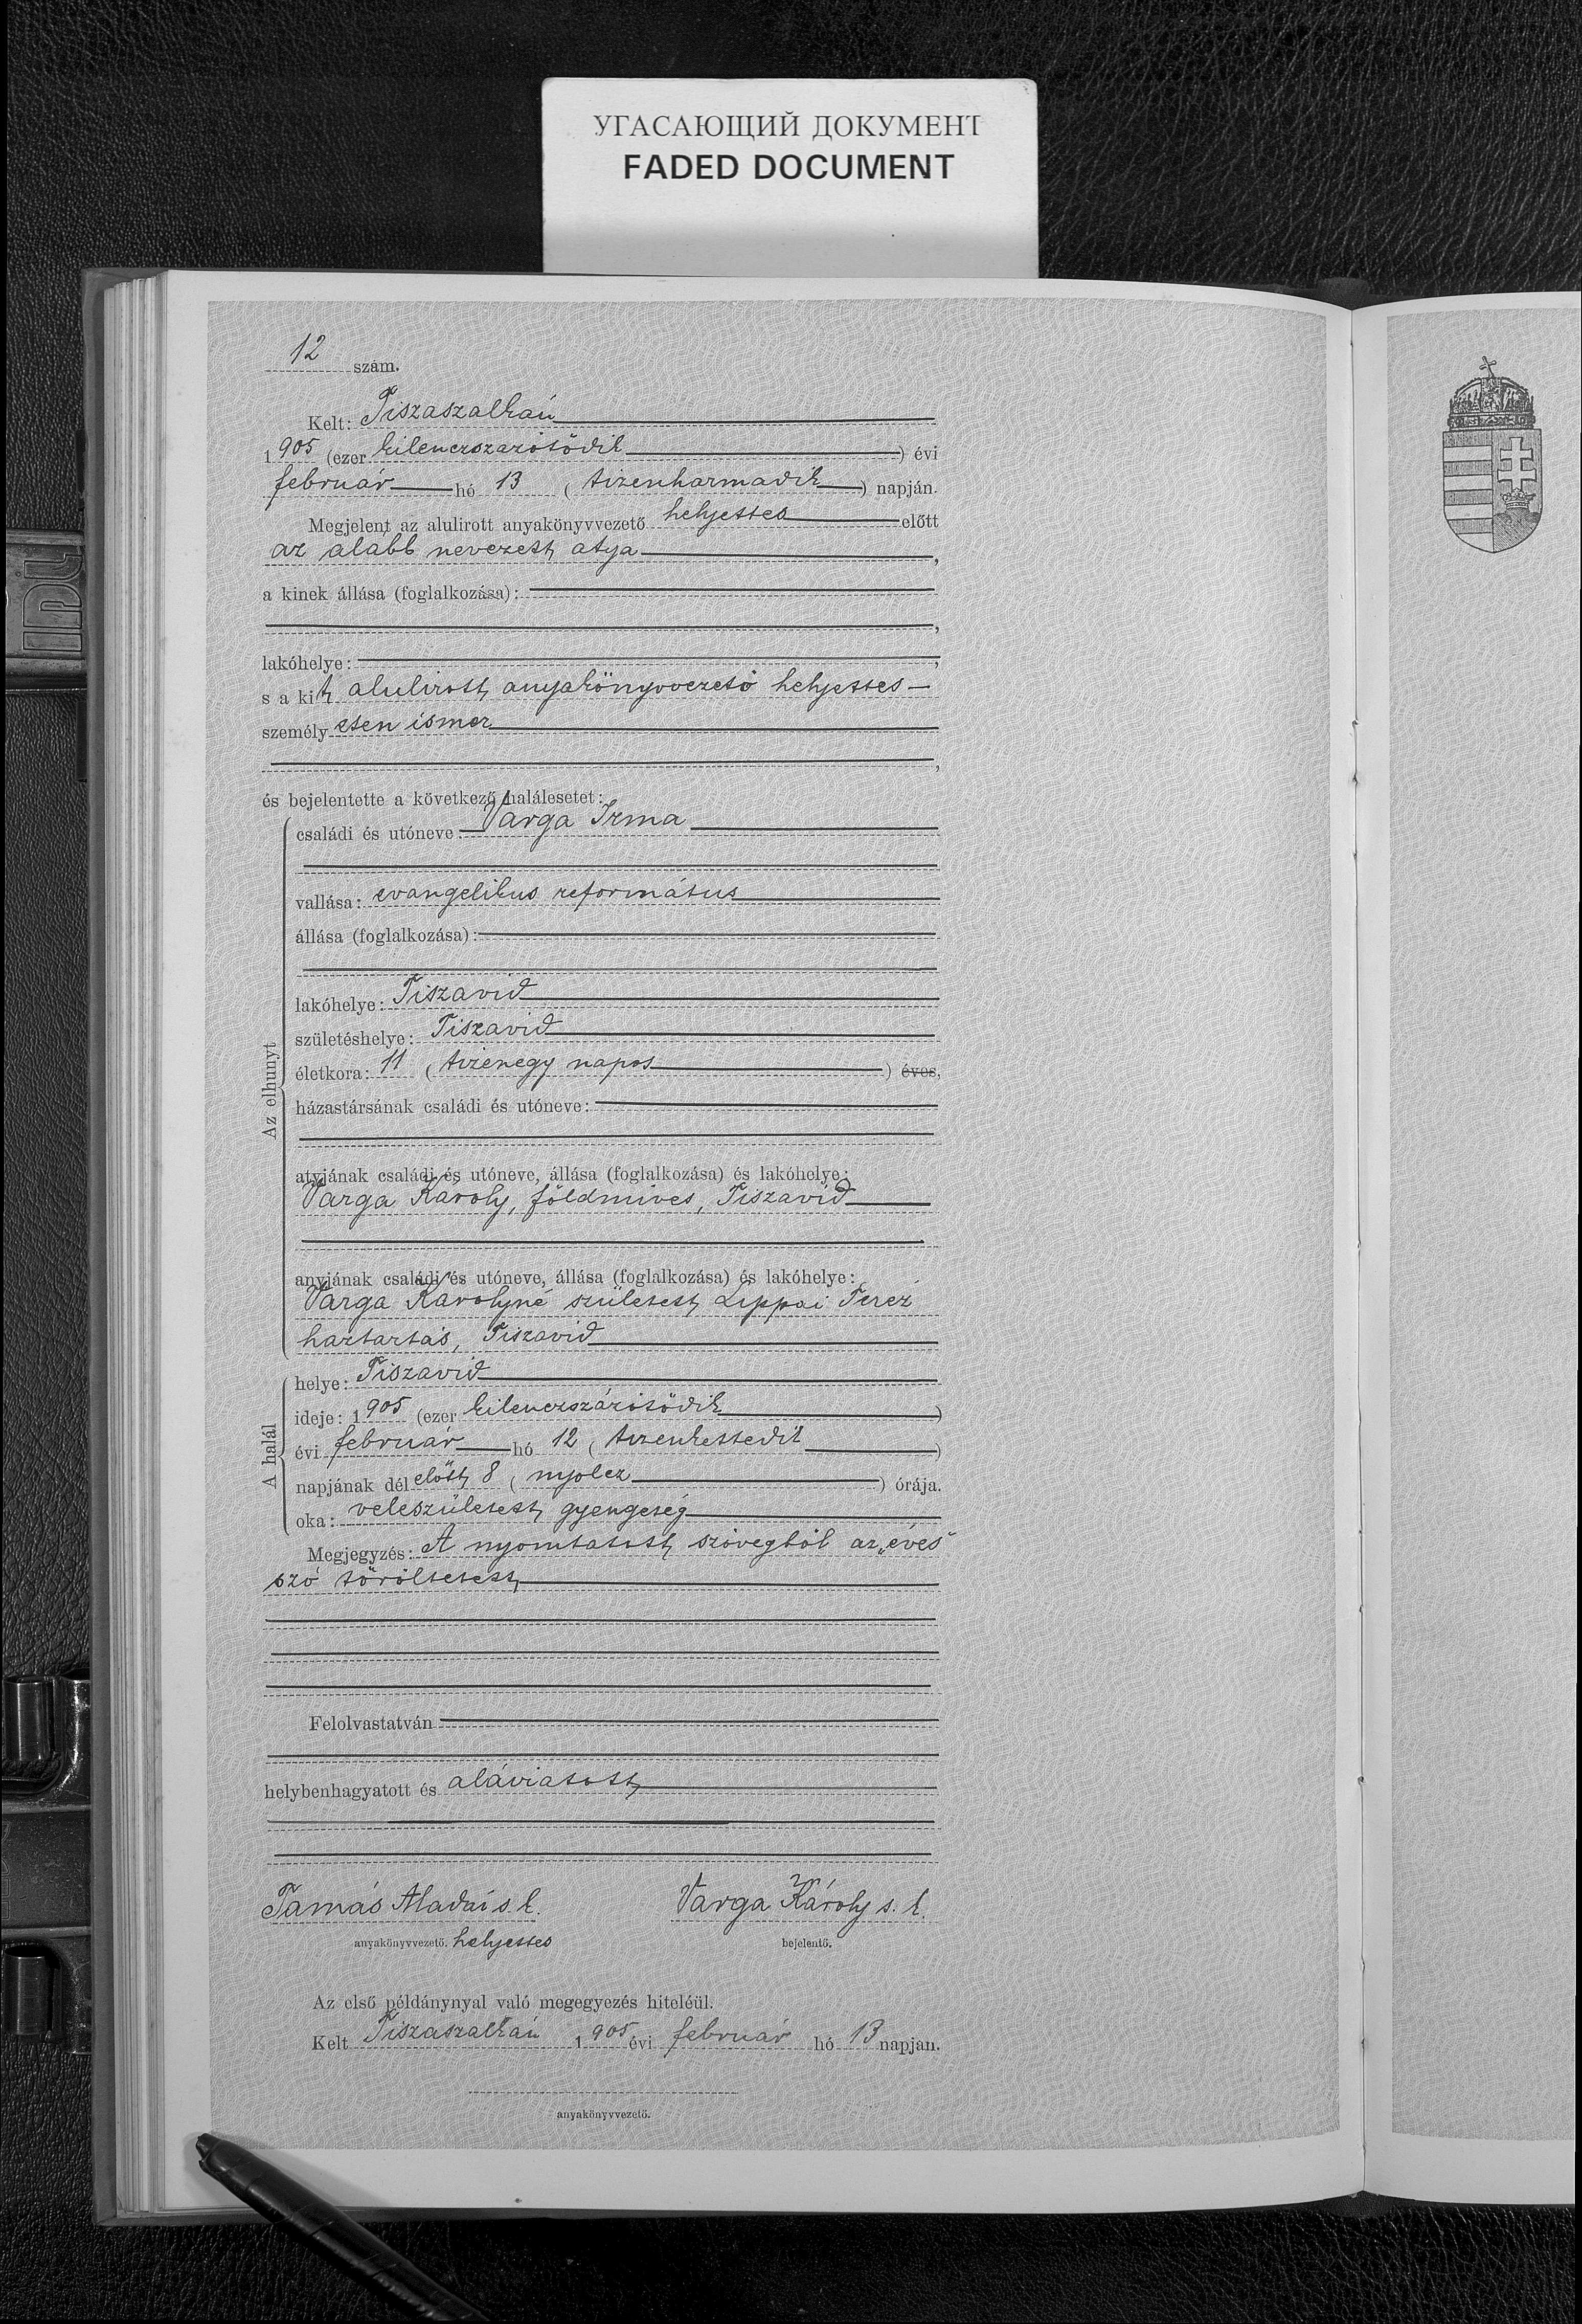 УГАСАЮЩИЙ ДОКУМЕНТ
FADED DOCUMENT
12 szám.
Kelt: Tiszaszalkán
1905 (ezer kilenczszázötödik) évi
február hó 13 (tizenharmadik) napján.
Megjelent az alulirott anyakönyvvezető helyettes előtt
az alább nevezett atya,
a kinek állása (foglalkozása):
,
lakóhelye: ,
s a kit alulirott anyakönyvvezető helyettes
személyesen ismer
,
és bejelentette a következő halálesetet:
Az elhunyt
családi és utóneve: Varga Irma
vallása: evangelikus református
állása (foglalkozása):
lakóhelye: Tiszavid
születéshelye: Tiszavid
életkora: 11 (tizenegy napos) éves,
házastársának családi és utóneve:
atyjának családi és utóneve, állása (foglalkozása) és lakóhelye:
Varga Károly, földmives, Tiszavid
anyjának családi és utóneve, állása (foglalkozása) és lakóhelye:
Varga Károlyné született Lippai Teréz
háztartás, Tiszavid
A halál
helye: Tiszavid
ideje: 1905 (ezer kilenczszázötödik)
évi február hó 12 (tizenkettedik)
napjának délelőtt 8 (nyolcz) órája.
oka: veleszületett gyengeség
Megjegyzés: A nyomtatott szövegből az „éves"
szó töröltetett
Felolvastatván
helybenhagyatott és aláiratott
Tamás Aladár s. k. Varga Károly s. k.
anyakönyvvezető. helyettes bejelentő.
Az első példánynyal való megegyezés hiteléül.
Kelt Tiszaszalkán 1905 évi február hó 13 napján.
anyakönyvvezető.